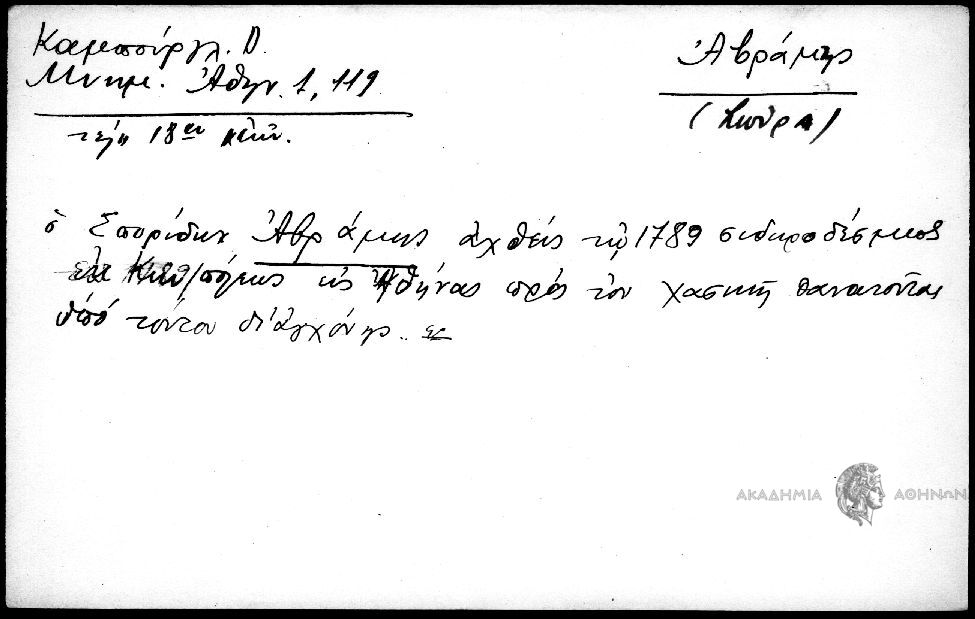 Καμπούργλ. Δ.
Μνημ. Ἀθην. 1, 119
τέλη 18ου αἰῶν.
Ἀβράμης
(Σπύρο)
ὁ Σπυρίδων Ἀβράμης ἀχθείς τῷ 1789 σιδηροδέσμιος
ἐκ Κων/πόλεως εἰς Ἀθήνας πρός τόν χασεκῆ θανατοῦται
ὑπό τούτου δι' ἀγχόνης.
ΑΚΑΔΗΜΙΑ ΑΘΗΝΩΝ